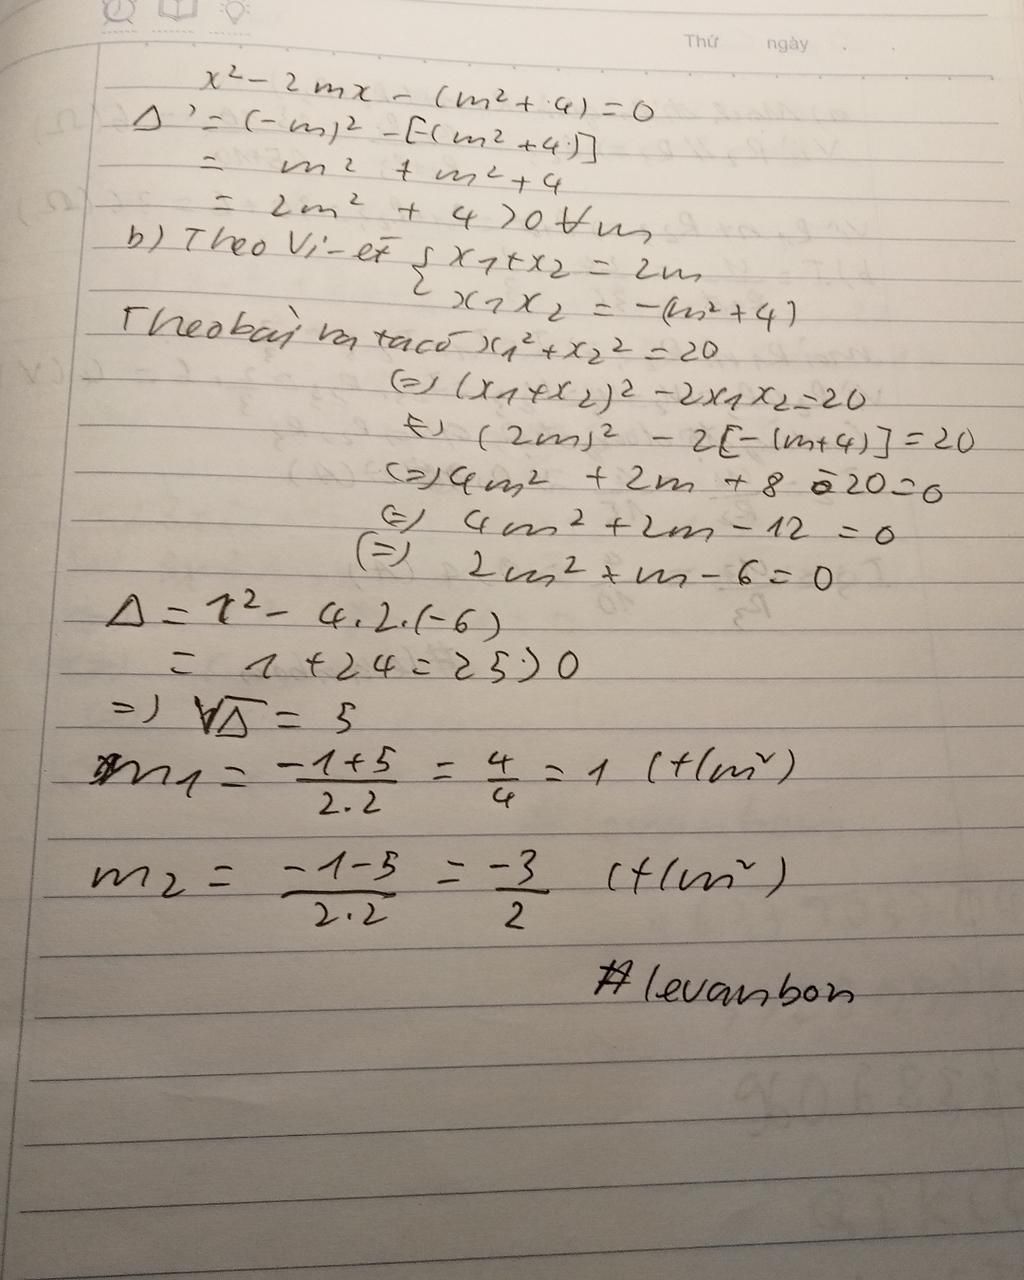 Thứ ngày
x² - 2mx - (m² + 4) = 0
Δ' = (-m)² - [-(m² + 4)]
= m² + m² + 4
= 2m² + 4 > 0 ∀m
b) Theo Vi-ét { x1 + x2 = 2m
x1x2 = -(m² + 4)
Theo bài ra ta có x1² + x2² = 20
(=) (x1 + x2)² - 2x1x2 = 20
(=) (2m)² - 2[-(m+4)] = 20
(=) 4m² + 2m + 8 - 20 = 0
(=) 4m² + 2m - 12 = 0
(=) 2m² + m - 6 = 0
Δ = 1² - 4.2.(-6)
= 1 + 24 = 25 > 0
=) √Δ = 5
m1 = (-1+5)/(2.2) = 4/4 = 1 (t/m²)
m2 = (-1-5)/(2.2) = -3/2 (t/m²)
# levanbon